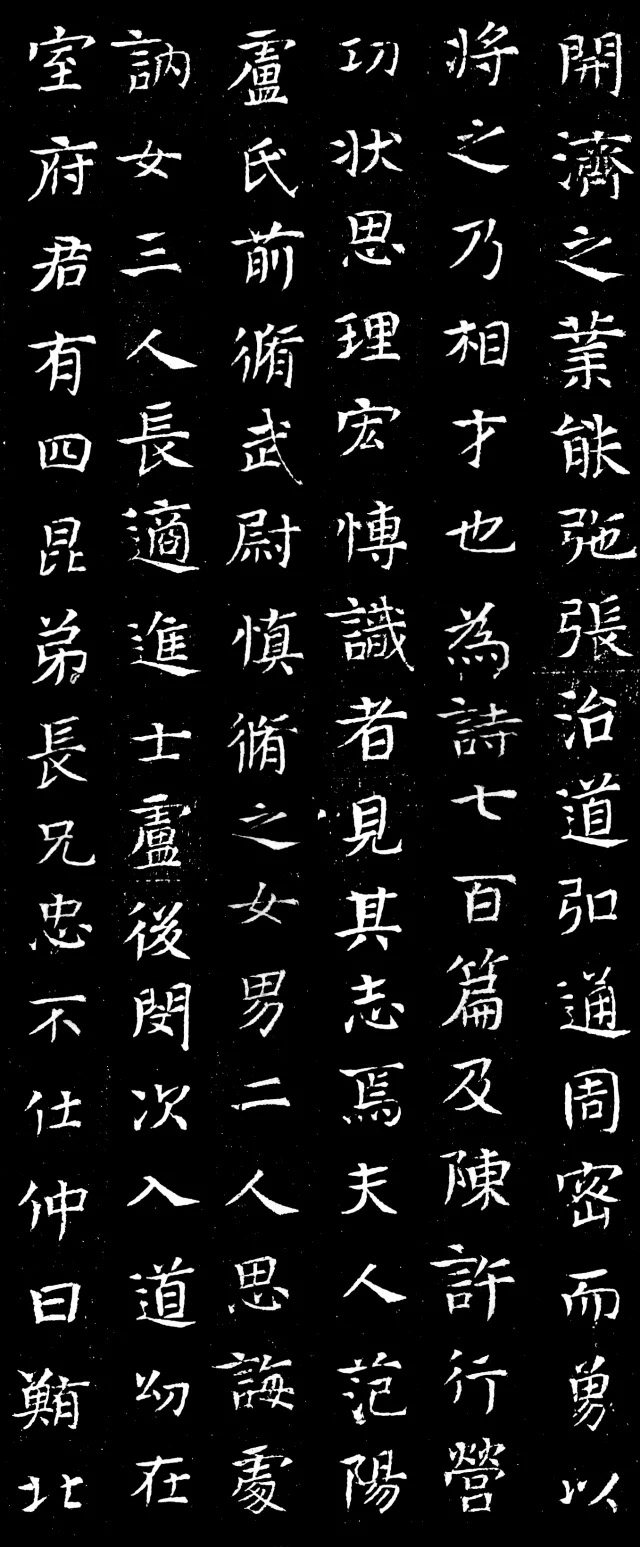 開濟之業能弛張治道弘通周密而勇以
將之乃相才也為詩七百篇及陳許行營
功狀思理宏博識者見其志焉夫人范陽
盧氏前脩武尉慎脩之女男二人思誨處
訥女三人長適進士盧後閔次入道幼在
室府君有四昆弟長兄忠不仕仲曰䵋北